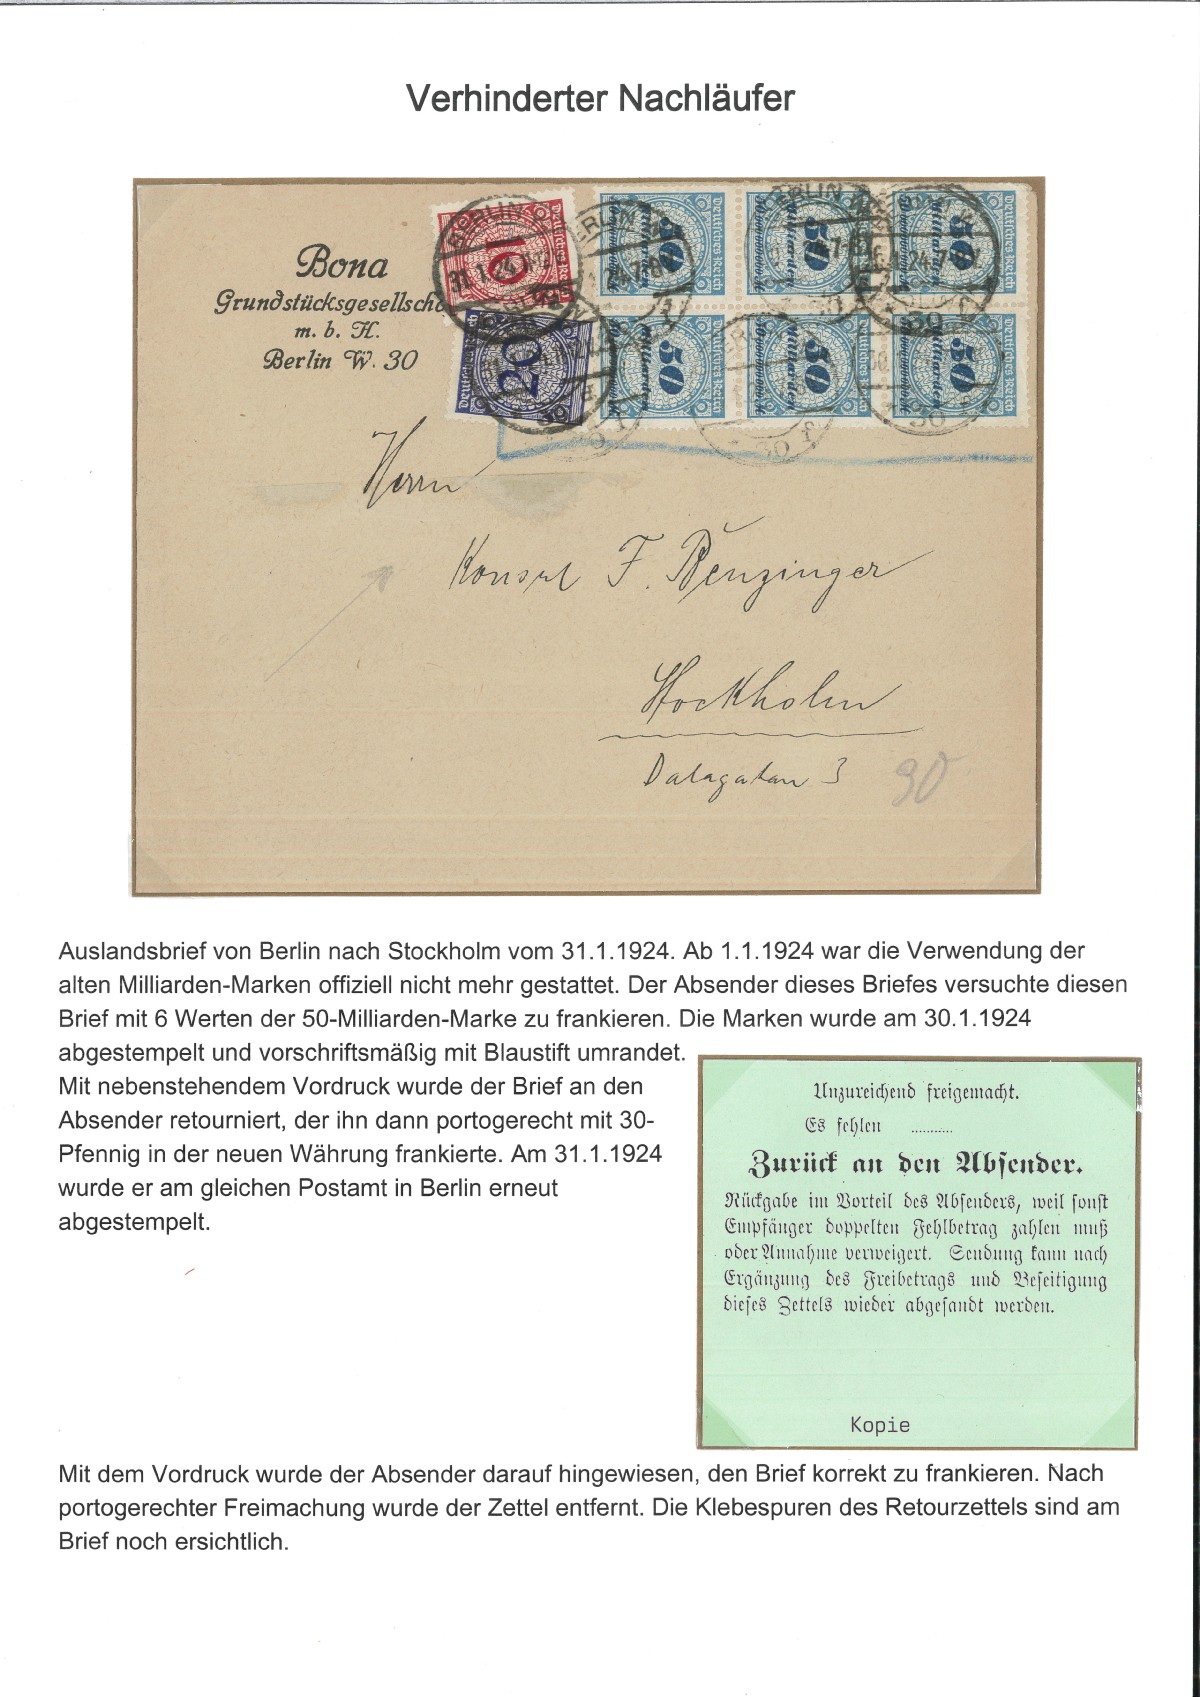 Verhinderter Nachläufer
Bona
Grundstücksgesellscha
m. b. H.
Berlin W. 30
BERLIN
31.1.24.7
10
Deutsches Reich
20
Deutsches Reich
50 Milliarden
Deutsches Reich
50 Milliarden
Deutsches Reich
50 Milliarden
Deutsches Reich
50 Milliarden
Deutsches Reich
50 Milliarden
Deutsches Reich
50 Milliarden
Deutsches Reich
Herrn
Konsul F. Benzinger
Stockholm
Dalagatan 3
30
Auslandsbrief von Berlin nach Stockholm vom 31.1.1924. Ab 1.1.1924 war die Verwendung der
alten Milliarden-Marken offiziell nicht mehr gestattet. Der Absender dieses Briefes versuchte diesen
Brief mit 6 Werten der 50-Milliarden-Marke zu frankieren. Die Marken wurde am 30.1.1924
abgestempelt und vorschriftsmäßig mit Blaustift umrandet.
Mit nebenstehendem Vordruck wurde der Brief an den
Absender retourniert, der ihn dann portogerecht mit 30-
Pfennig in der neuen Währung frankierte. Am 31.1.1924
wurde er am gleichen Postamt in Berlin erneut
abgestempelt.
Unzureichend freigemacht.
Es fehlen ...........
Zurück an den Absender.
Rückgabe im Vorteil des Absenders, weil sonst
Empfänger doppelten Fehlbetrag zahlen muß
oder Annahme verweigert. Sendung kann nach
Ergänzung des Freibetrags und Beseitigung
dieses Zettels wieder abgesandt werden.
Kopie
Mit dem Vordruck wurde der Absender darauf hingewiesen, den Brief korrekt zu frankieren. Nach
portogerechter Freimachung wurde der Zettel entfernt. Die Klebespuren des Retourzettels sind am
Brief noch ersichtlich.